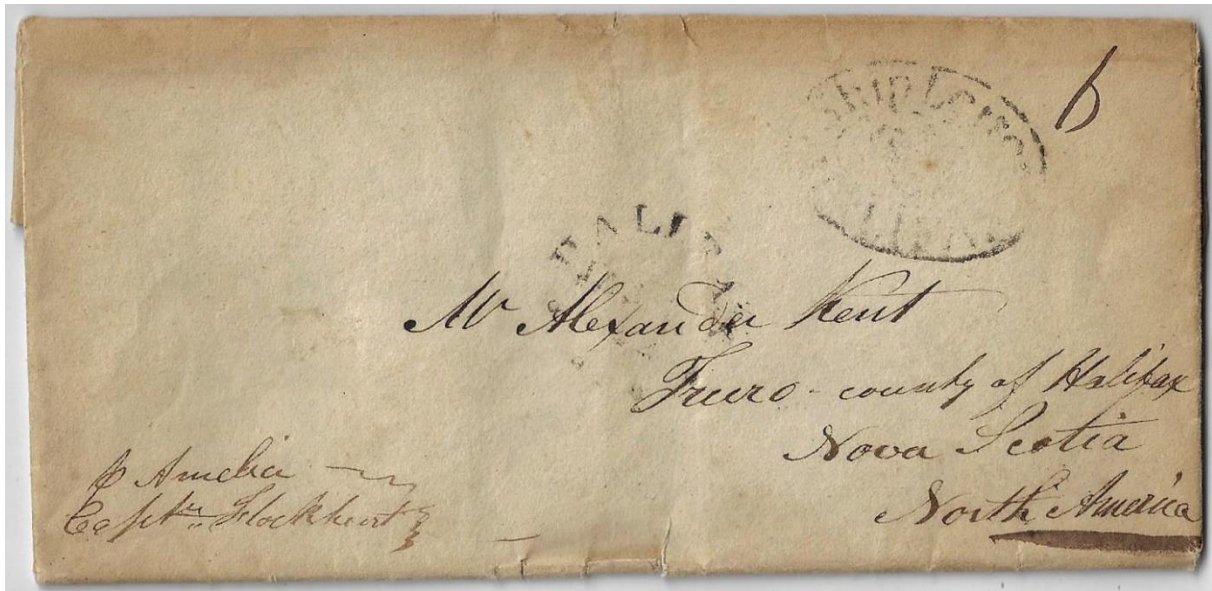 6
Ship Letter
HALIFAX
HALIFAX
Mr Alexander Kent
Truro - county of Halifax
Nova Scotia
North America
p Amelia
Captn. Flockhert